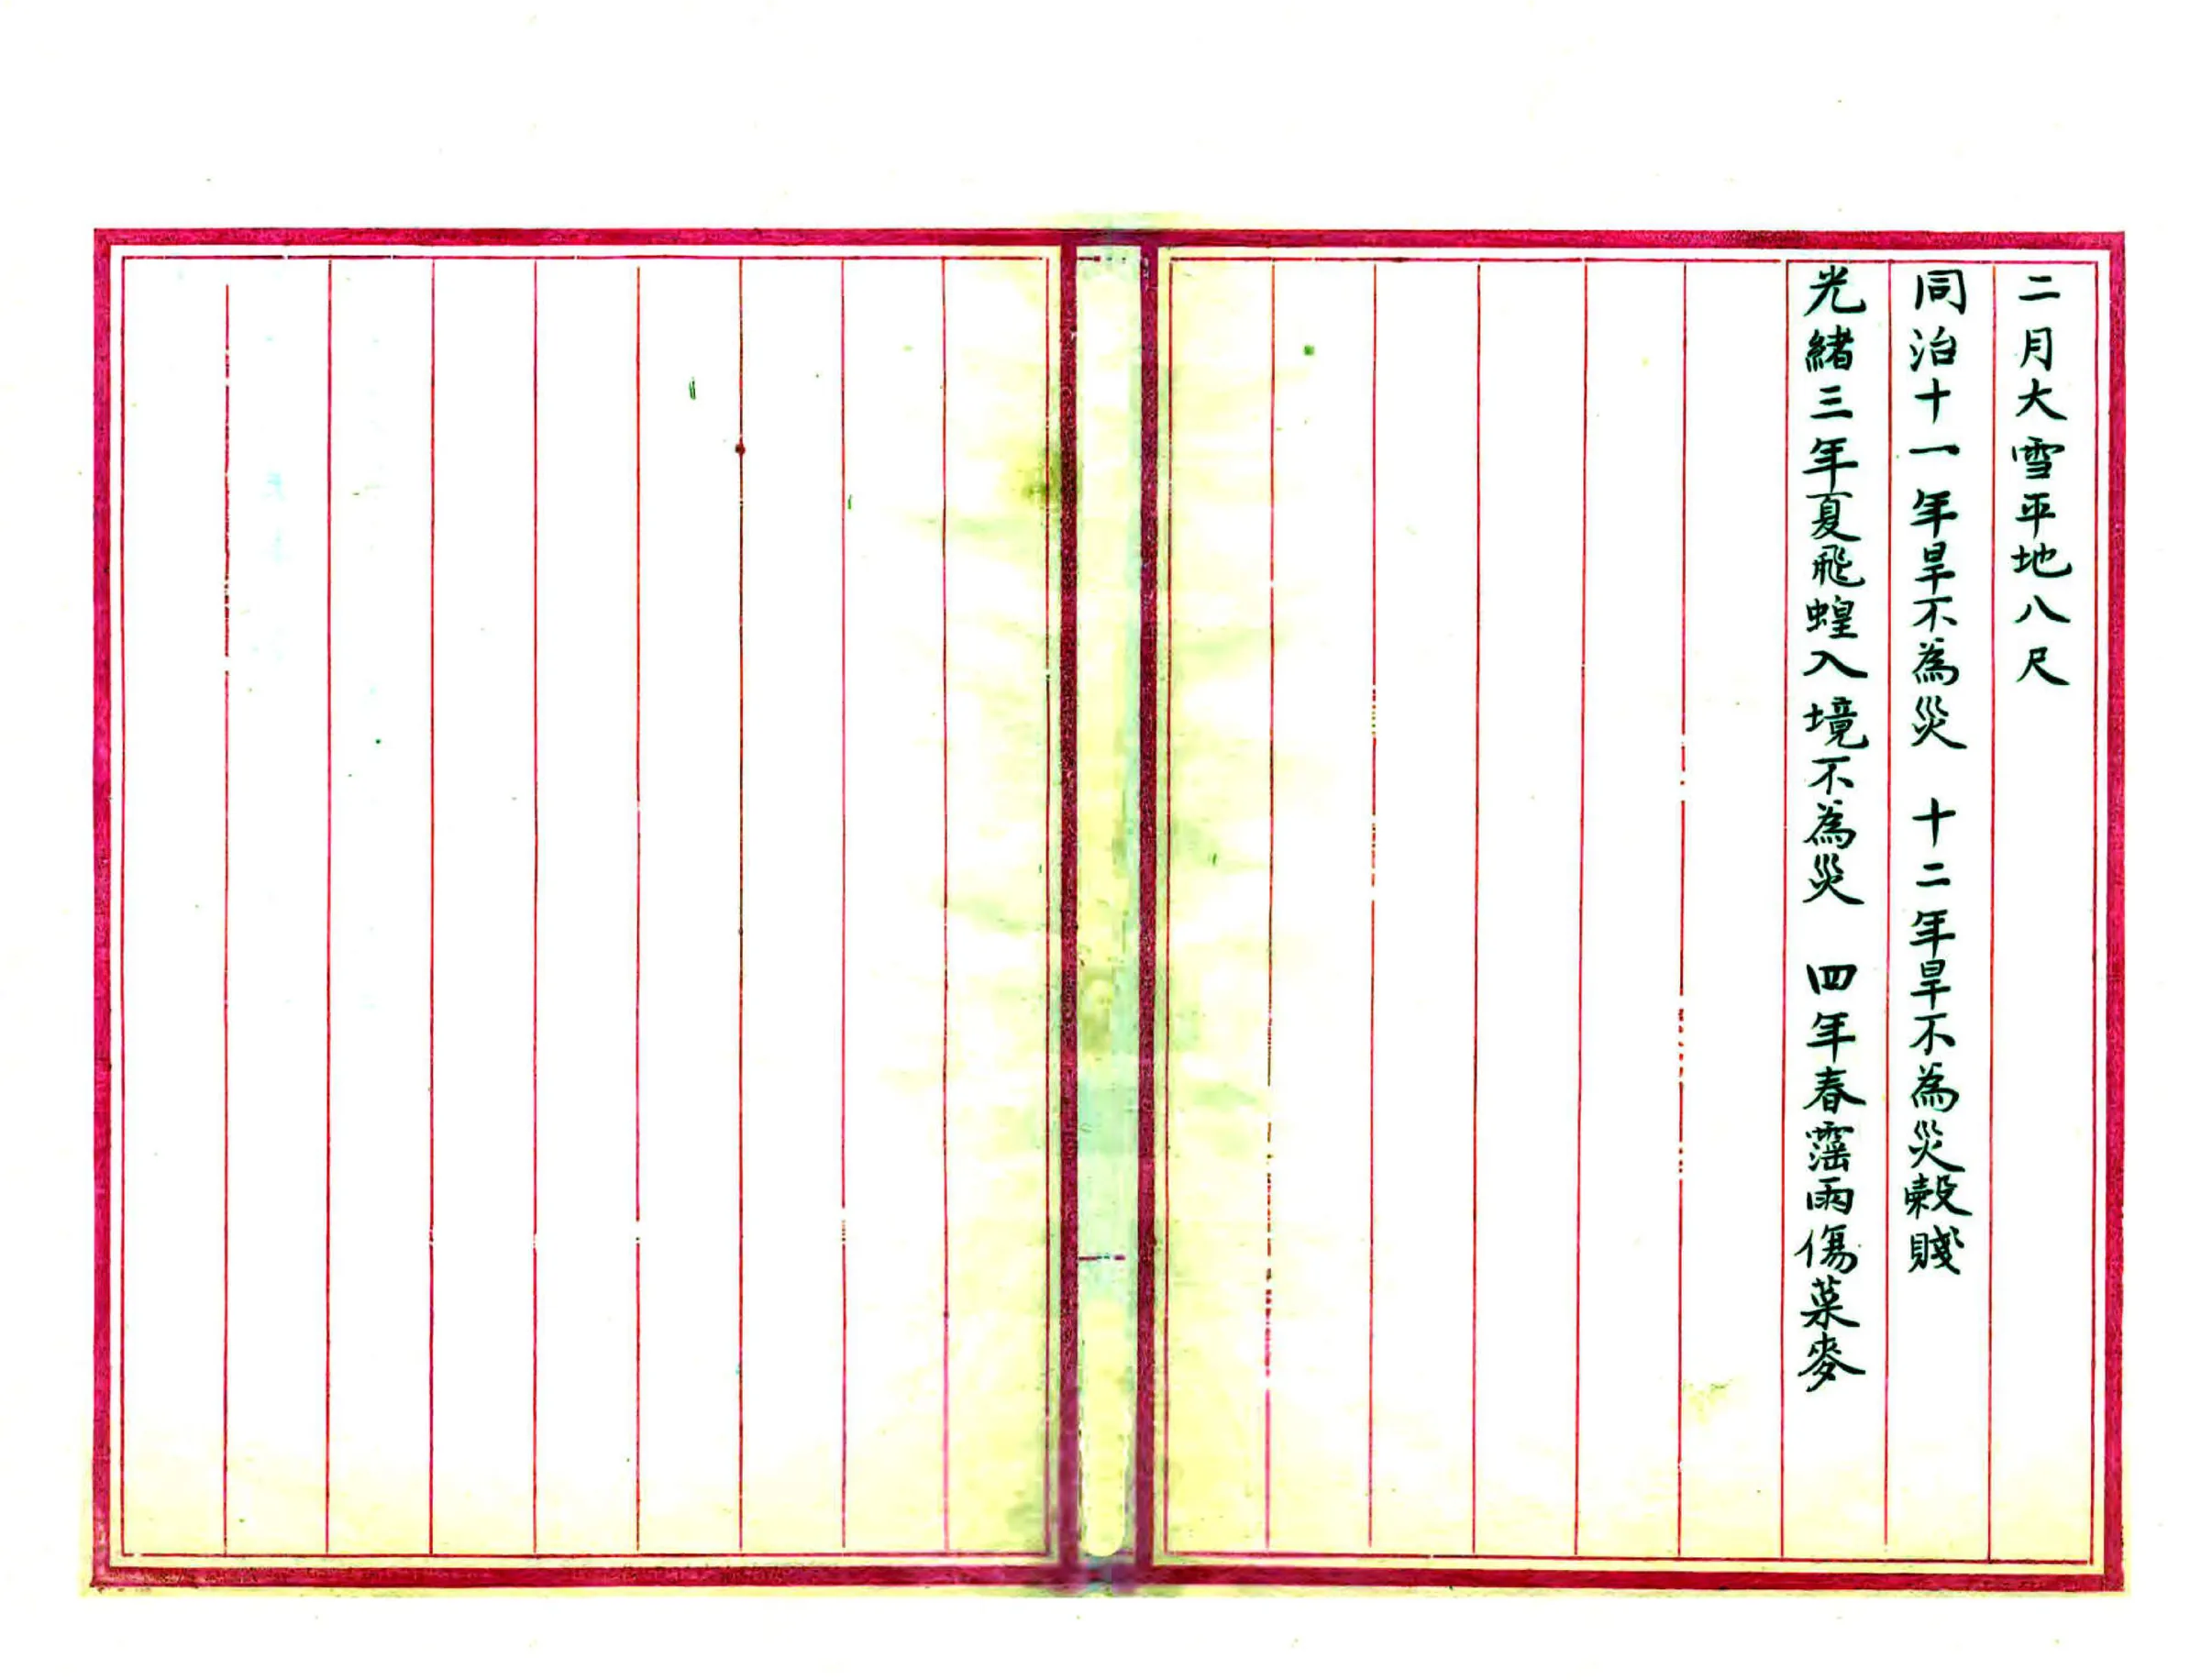 二月大雪平地八尺
同治十一年旱不為災　十二年旱不為災穀賤
光緒三年夏飛蝗入境不為災　四年春霪雨傷菜麥